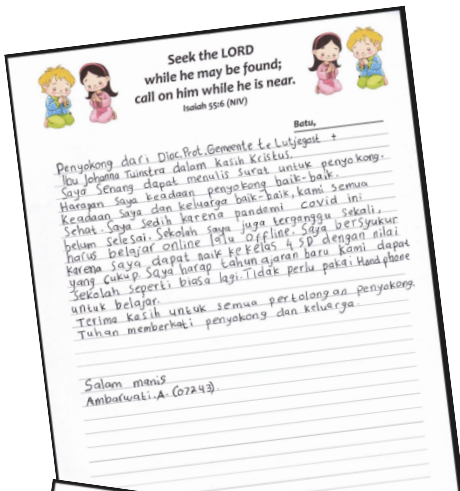 Seek the LORD
while he may be found;
call on him while he is near.
Isaiah 55:6 (NIV)
Batu,
Penyokong dari Diac. Prot. Gemeente te Lutjegast +
Ibu Johanna Tuinstra dalam kasih Kristus.
Saya Senang dapat menulis surat untuk penyokong.
Harapan saya keadaan penyokong baik-baik.
Keadaan saya dan keluarga baik-baik, kami semua
Sehat. Saya sedih karena pandemi covid ini
belum selesai. Sekolah saya juga terganggu sekali,
harus belajar online lalu offline. Saya bersyukur
karena saya dapat naik ke kelas 4 SD dengan nilai
yang cukup. Saya harap tahun ajaran baru kami dapat
Sekolah seperti biasa lagi. Tidak perlu pakai Handphone
untuk belajar.
Terima kasih untuk semua pertolongan penyokong.
Tuhan memberkati penyokong dan keluarga.
Salam manis
Ambarwati. A. (07243)